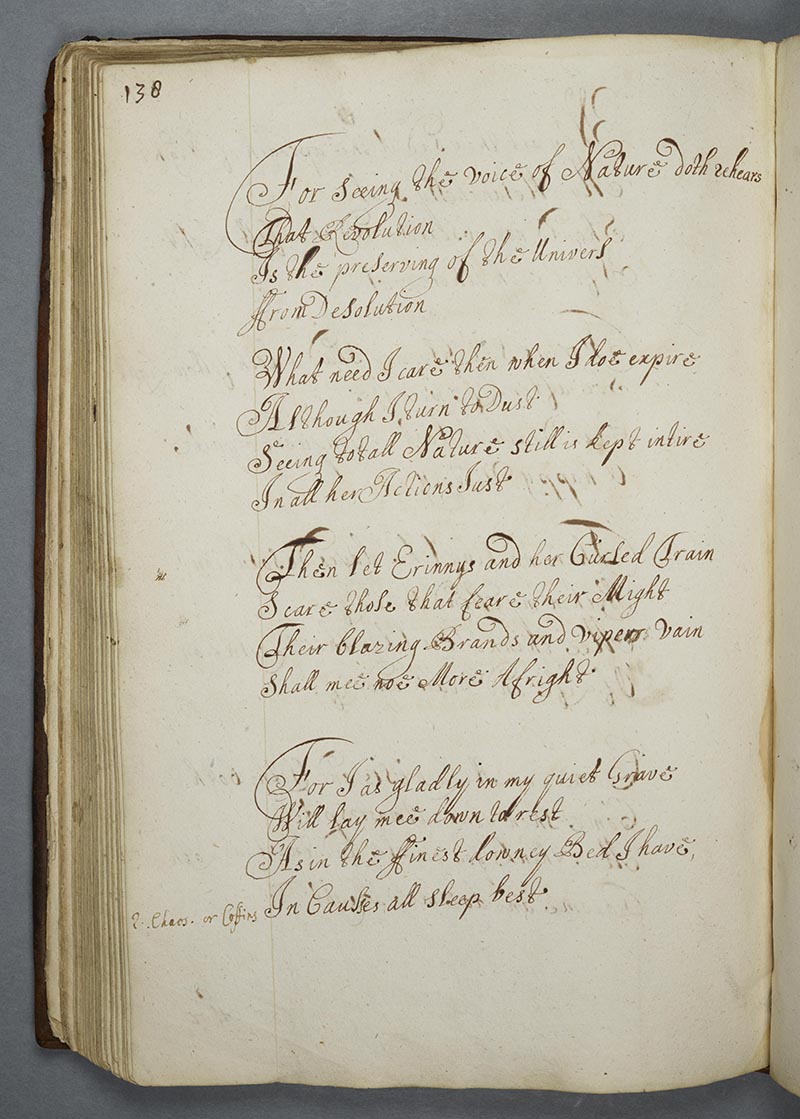 138
For Seeing the voice of Nature doth rehears
That Revolution
Is the preserving of the Univers
ffrom Desolution
What need I care then when I doe expire
Although I turn to Dust
Seeing totall Nature still is kept intire
In all her Actions Just
Then let Erinnys and her Curled Train
Scare those that feare their Might
Their blazing Brands and vipers vain
Shall mee noe More Afright
For I as gladly in my quiet Grave
Will lay mee down to rest
As in the ffinest downey Bed I have,
2. Chaos. or Coffins In Causes all sleep best